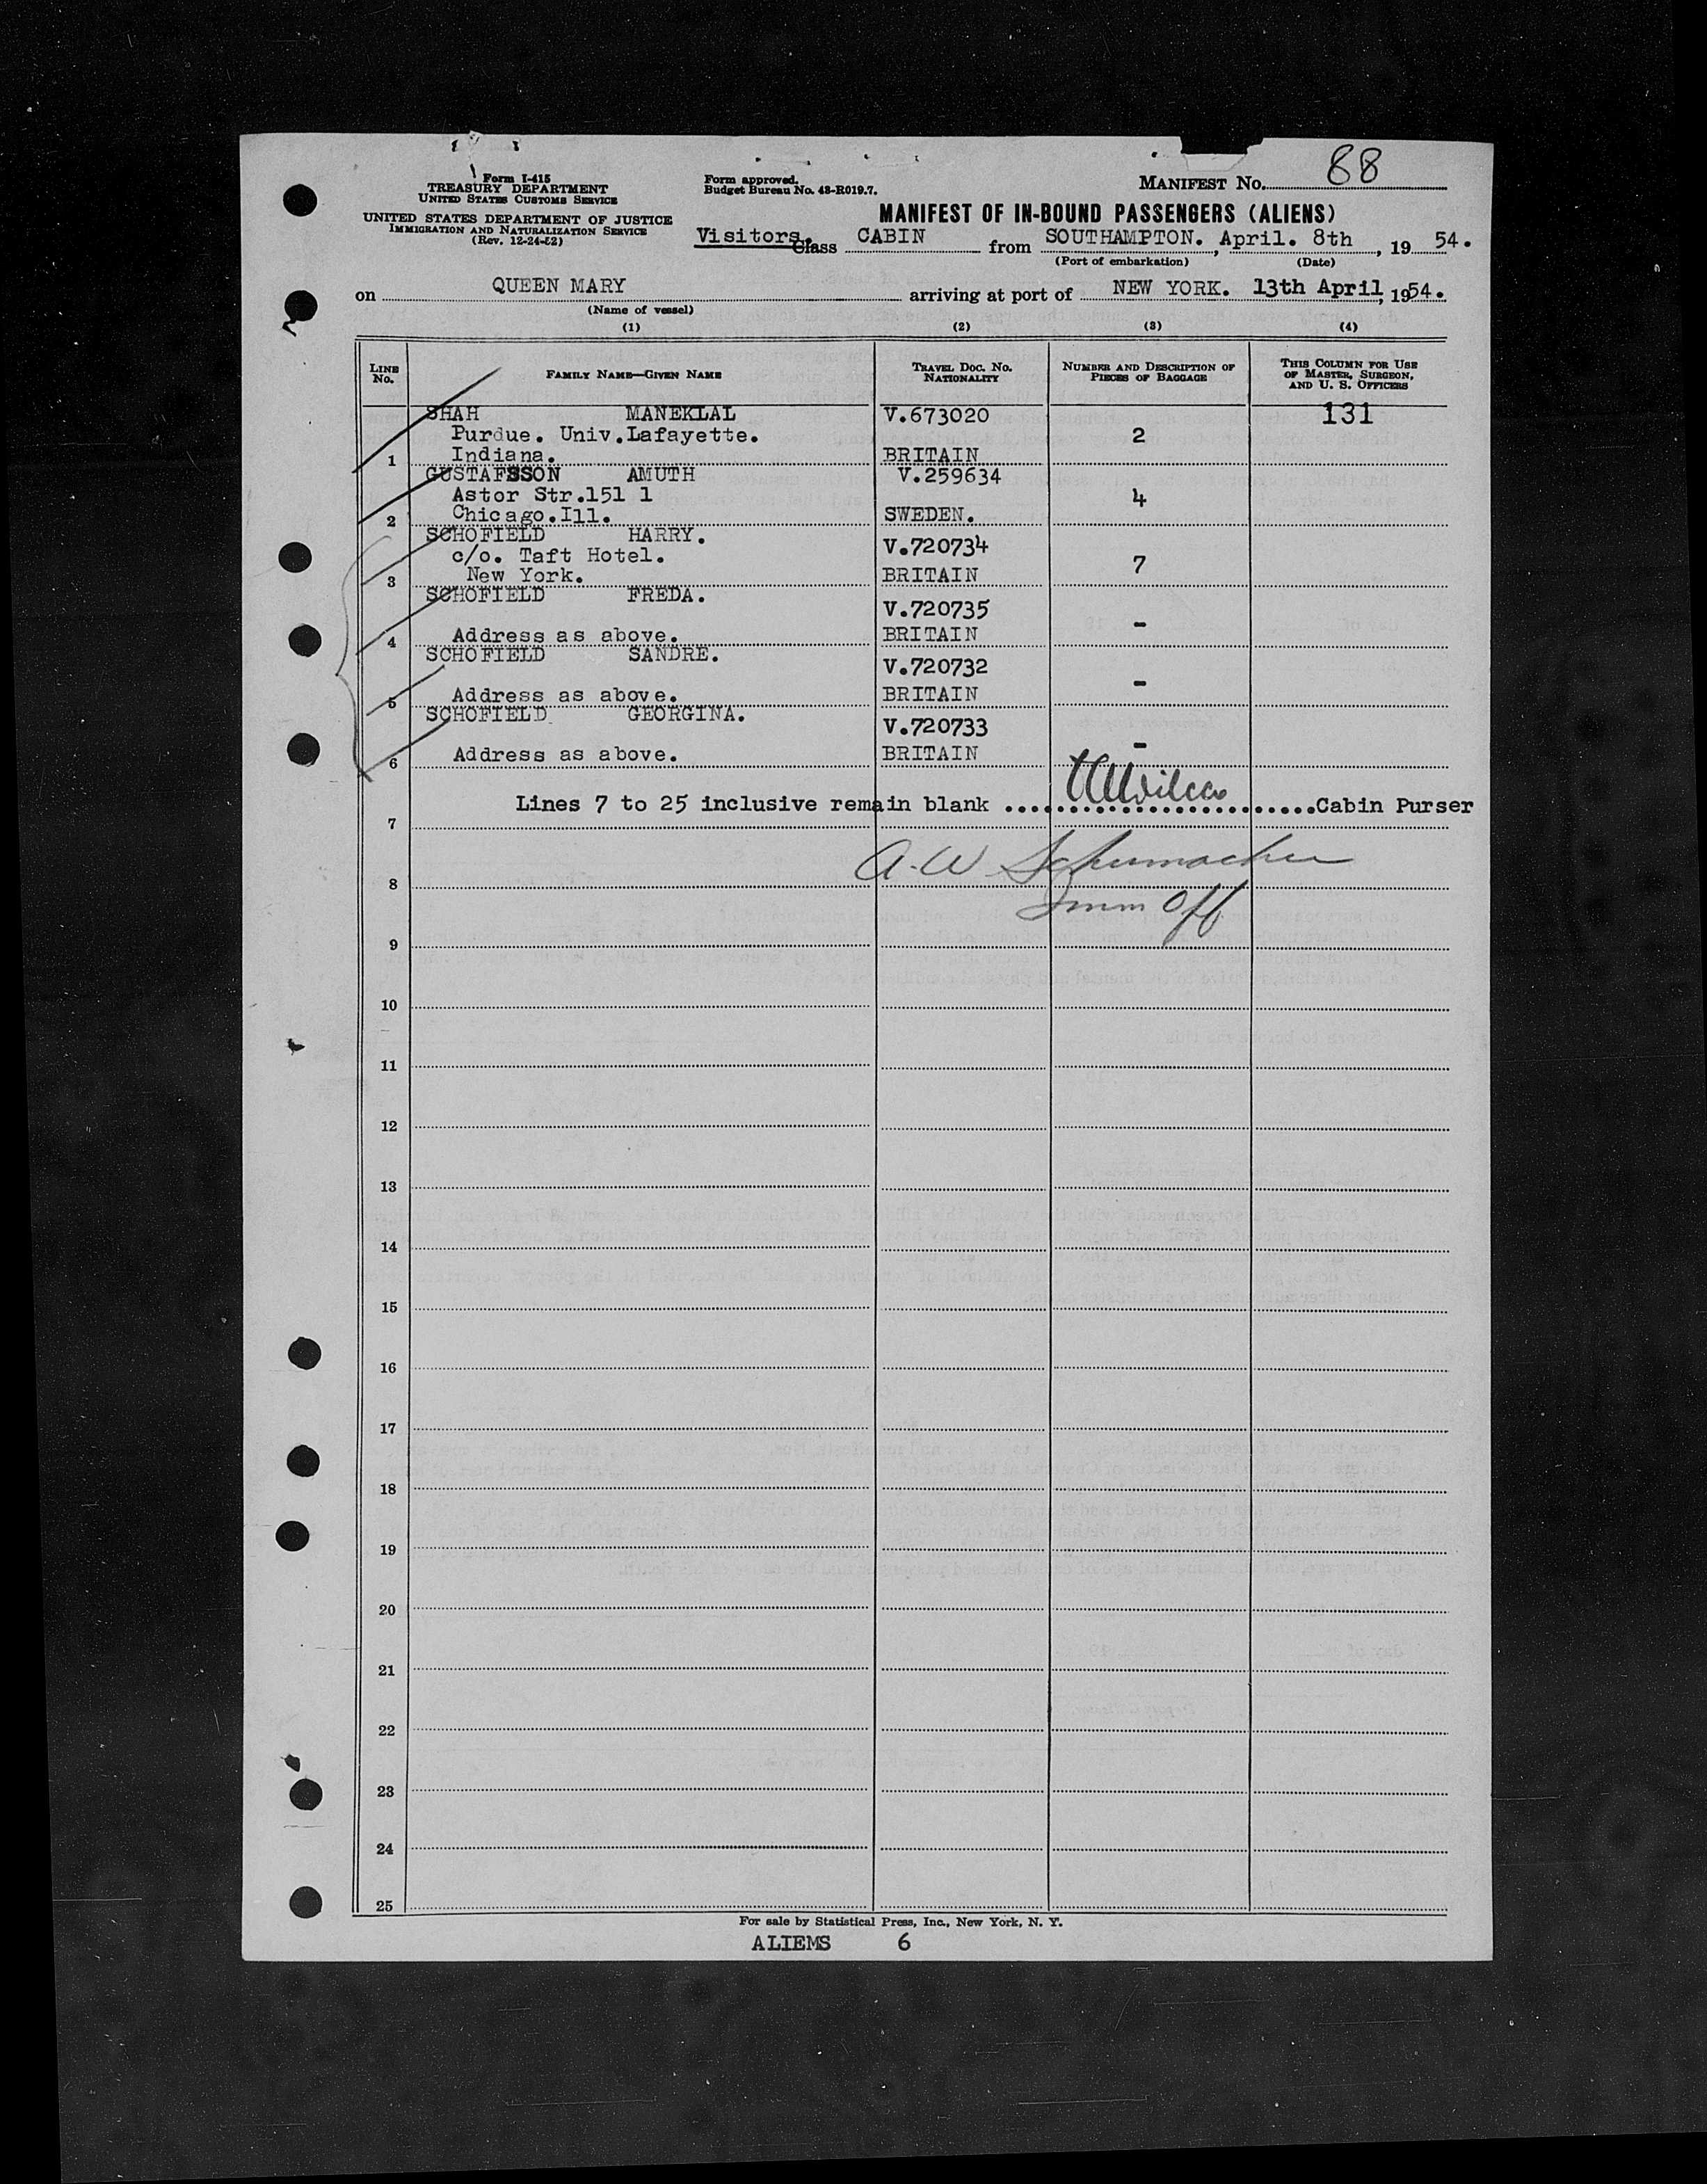 Form I-415
TREASURY DEPARTMENT
UNITED STATES CUSTOMS SERVICE
UNITED STATES DEPARTMENT OF JUSTICE
IMMIGRATION AND NATURALIZATION SERVICE
(Rev. 12-24-52)
Form approved.
Budget Bureau No. 43-R019.7.
MANIFEST No. 88
MANIFEST OF IN-BOUND PASSENGERS (ALIENS)
Visitors. Class CABIN from SOUTHAMPTON., April. 8th, 1954.
(Port of embarkation) (Date)
on QUEEN MARY arriving at port of NEW YORK. 13th April, 1954.
(Name of vessel)
(1) (2) (3) (4)
LINE No. FAMILY NAME—GIVEN NAME TRAVEL DOC. NO. NATIONALITY NUMBER AND DESCRIPTION OF PIECES OF BAGGAGE THIS COLUMN FOR USE OF MASTER, SURGEON, AND U. S. OFFICERS
SHAH MANEKLAL V.673020 131
Purdue. Univ.Lafayette. 2
1 Indiana. BRITAIN
GUSTAFSSON AMUTH V.259634
Astor Str.151 1 4
2 Chicago.Ill. SWEDEN.
SCHOFIELD HARRY. V.720734
c/o. Taft Hotel. 7
3 New York. BRITAIN
SCHOFIELD FREDA. V.720735
-
4 Address as above. BRITAIN
SCHOFIELD SANDRE. V.720732
-
5 Address as above. BRITAIN
SCHOFIELD GEORGINA. V.720733
-
6 Address as above. BRITAIN
Lines 7 to 25 inclusive remain blank .......................Cabin Purser
7
A.W Schumacher
8
Imm Off
9
10
11
12
13
14
15
16
17
18
19
20
21
22
23
24
25
For sale by Statistical Press, Inc., New York, N. Y.
ALIEMS 6